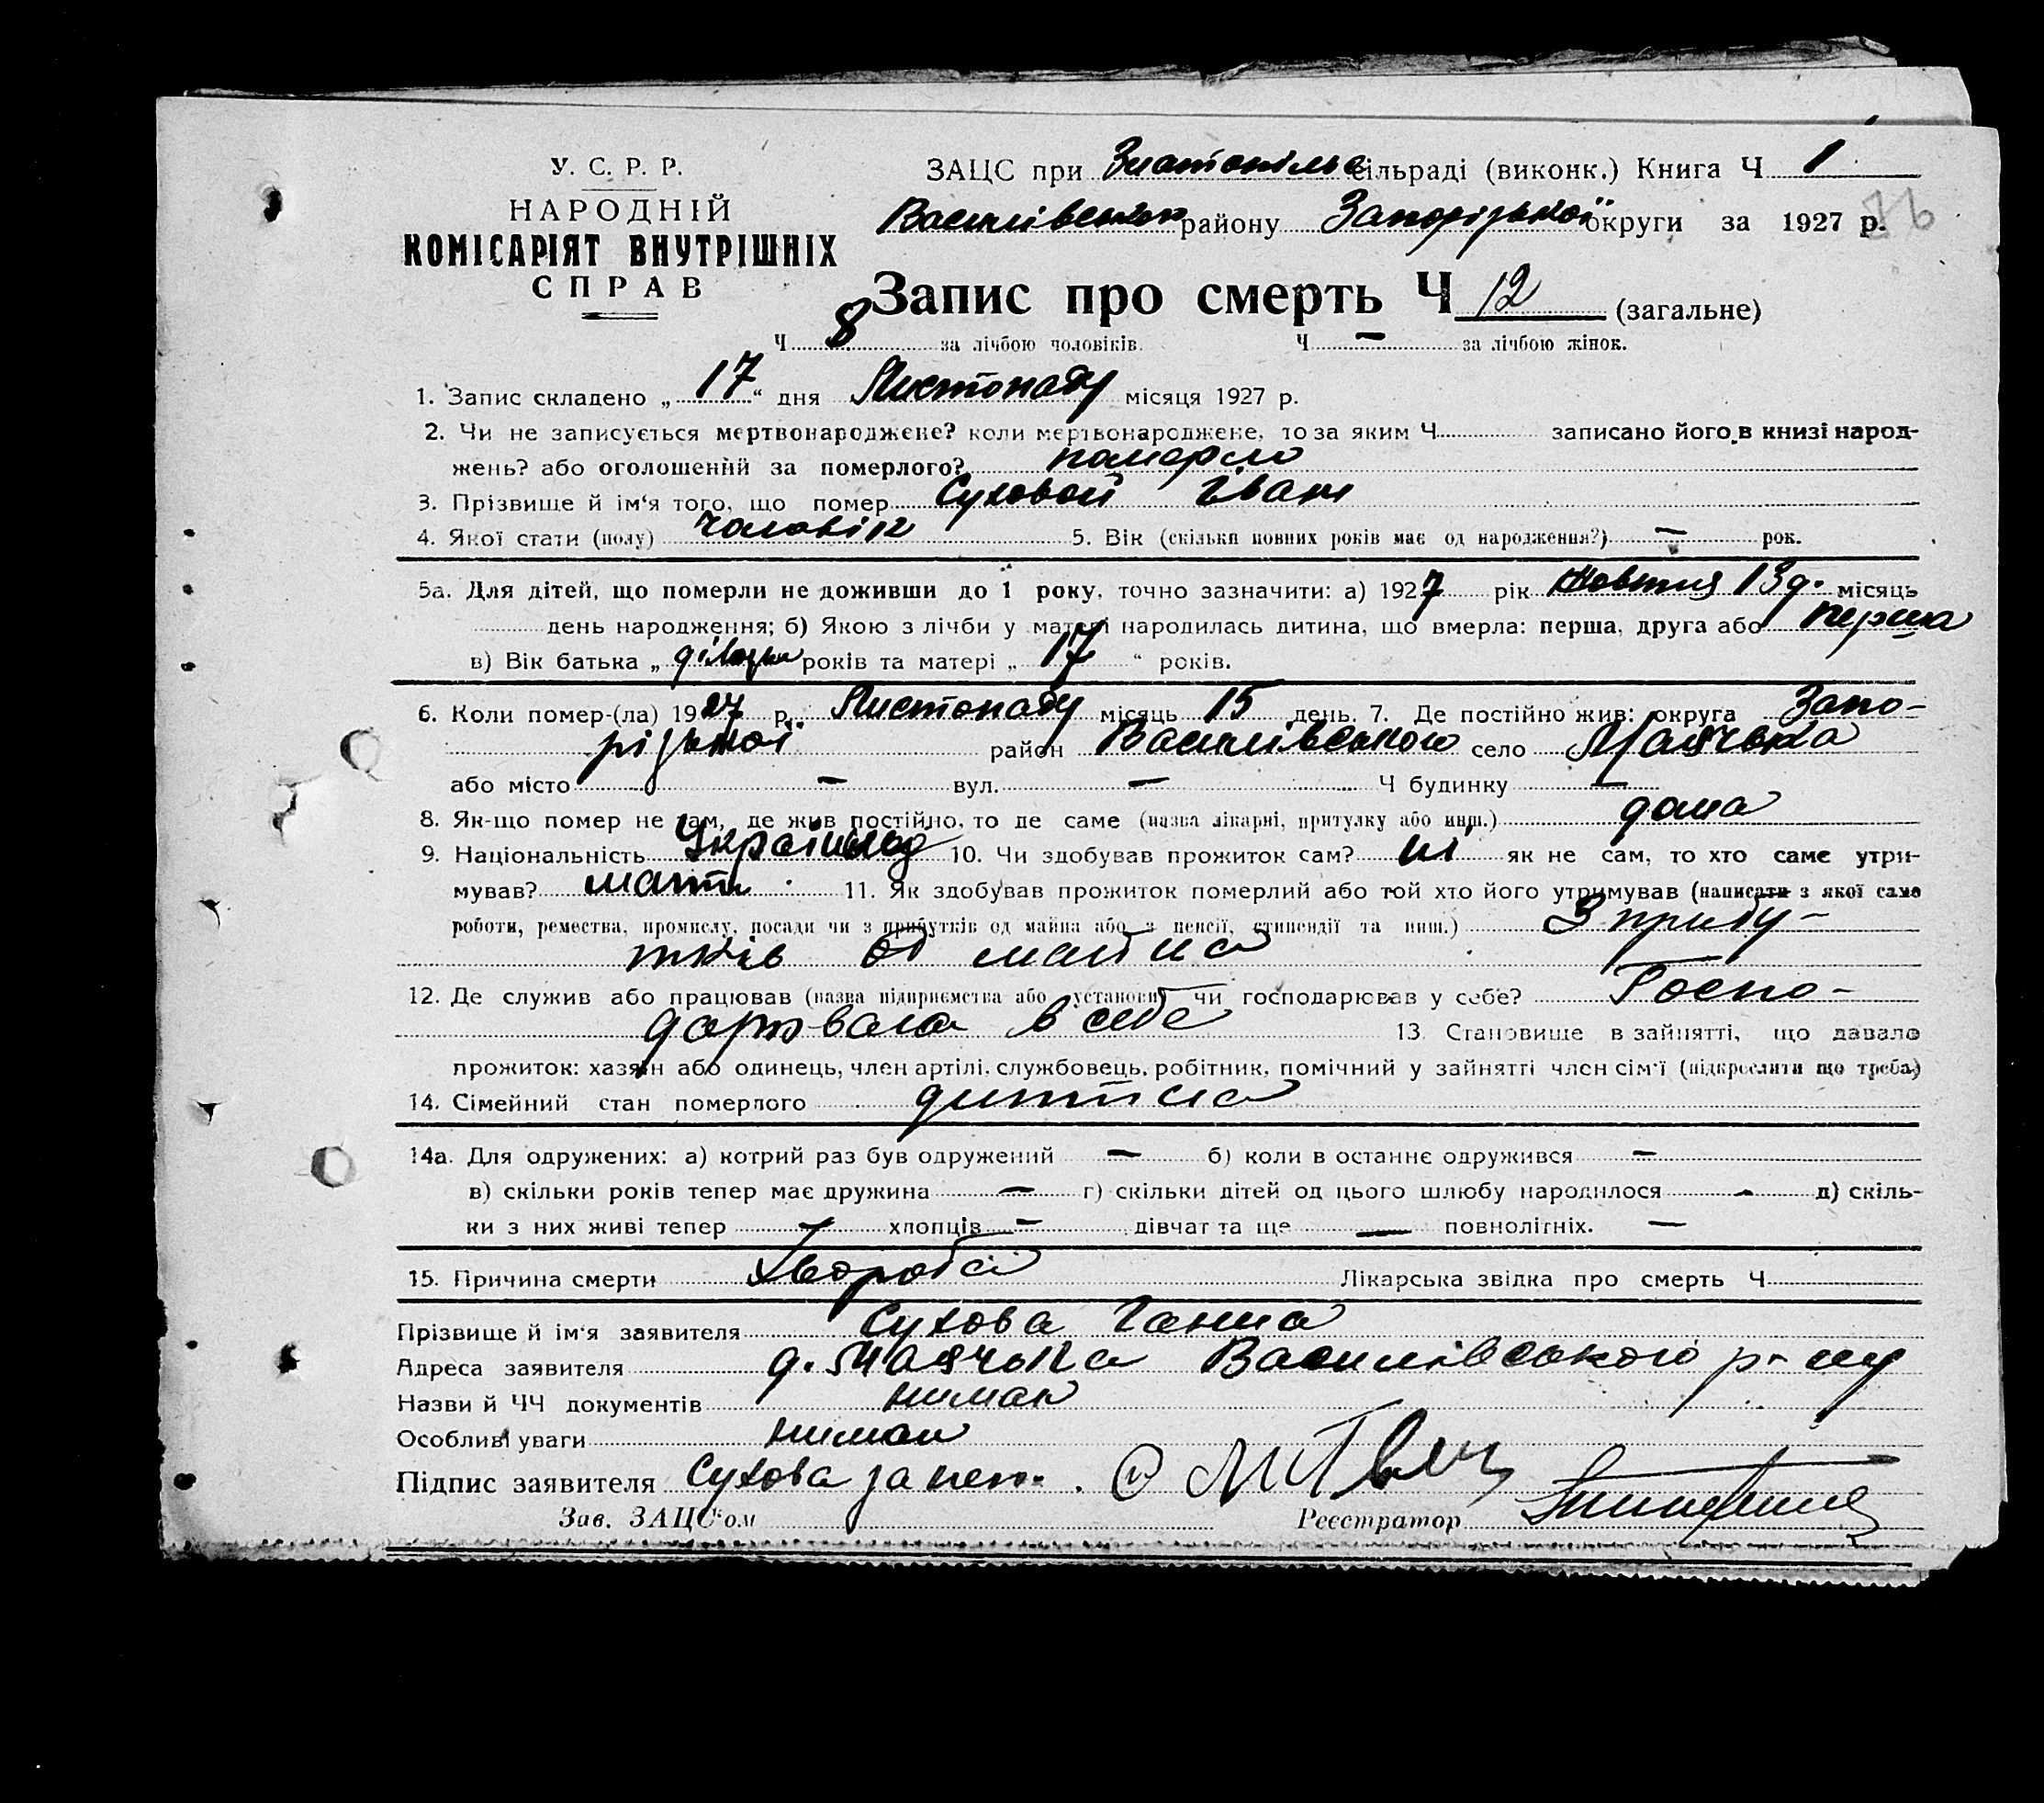 У. С. Р. Р.
НАРОДНІЙ
КОМІСАРІЯТ ВНУТРІШНІХ
СПРАВ
ЗАЦС при Златопільс сільраді (виконк.) Книга Ч 1
Василівськ району Запорізької округи за 1927 р.
Запис про смерть Ч 12 (загальне)
Ч 8 за лічбою чоловіків. Ч — за лічбою жінок.
1. Запис складено „ 17 “ дня Листопаду місяця 1927 р.
2. Чи не записується мертвонароджене? коли мертвонароджене, то за яким Ч. записано його в книзі народ-
жень? або оголошений за померлого? померло
3. Прізвище й ім‘я того, що помер Суховой Іван
4. Якої стати (полу) чоловік 5. Вік (скільки повних років має од народження?) — рок.
5а. Для дітей, що померли не доживши до 1 року, точно зазначити: а) 1927 рік Жовтня 13 д. місяць
день народження; б) Якою з лічби у матері народилась дитина, що вмерла: перша, друга або перша
в) Вік батька „ років та матері „ 17 “ років.
6. Коли помер-(ла) 1927 р. Листопаду місяць 15 день. 7. Де постійно жив: округа Запо-
різької район Василівського село Маячька
або місто — вул. — Ч будинку —
8. Як-що помер не там, де жив постійно, то де саме (назва лікарні, притулку або инш.) дома
9. Національність 10. Чи здобував прожиток сам? ні як не сам, то хто саме утри-
мував? мати 11. Як здобував прожиток померлий або той хто його утримував (написати з якої само
роботи, ремества, промислу, посади чи з прибутків од майна або з пенсії, стипендії та инш.) З прибу-
тків од майна
12. Де служив або працював (назва підприємства або установи) чи господарював у себе? Госпо-
дарювала в себе 13. Становище в зайнятті, що давало
прожиток: хазяїн або одинець, член артілі, службовець, робітник, помічний у зайнятті член сім‘ї (підкреслити що треба)
14. Сімейний стан померлого дитина
14а. Для одружених: а) котрий раз був одружений — б) коли в останнє одружився —
в) скільки років тепер має дружина — г) скільки дітей од цього шлюбу народилося - д) скіль-
ки з них живі тепер — хлопців — дівчат та ще — повнолітніх. —
15. Причина смерти Хвороба Лікарська звідка про смерть Ч
Прізвище й ім‘я заявителя Сухова Ганна
Адреса заявителя д. Маячька Василівського р-ну
Назви й ЧЧ документів нимає
Особливі уваги нимає
Підпис заявителя Сухова за неп.
Зав. ЗАЦС‘ом Реєстратор